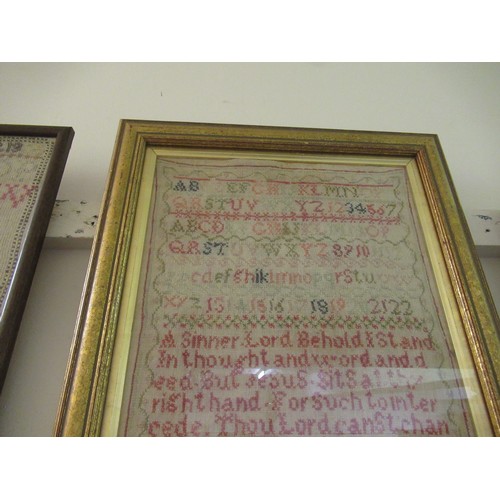 AB EFGH I KLMN
QRSTUV YZ 1234567
ABCD GH
QRSTUVWXYZ 8910
cdefghiklmnopqrstu
xyz 13 14 15 16 17 18 19 2122
A Sinner Lord Behold I Stand
In thought and word and d
eed. But Jesus Sits at the
right hand. For Such to inter
cede. Thou Lord canst chan